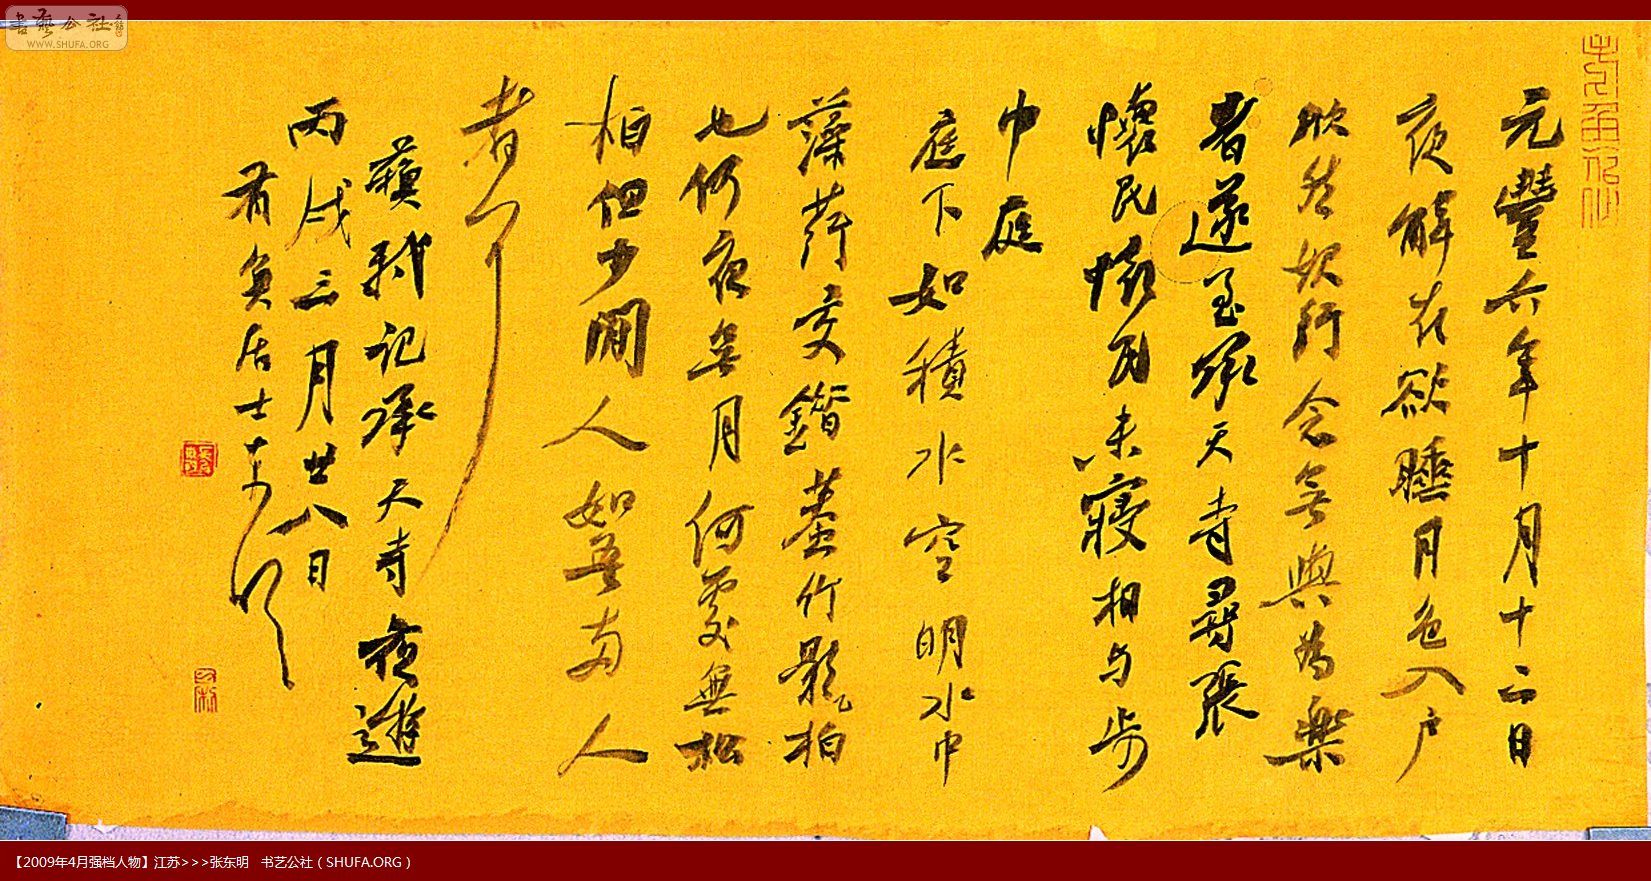 書藝公社
WWW.SHUFA.ORG
元豐六年十月十二日
夜解衣欲睡月色入戶
欣然起行念無與為樂
者遂至承天寺尋張
懷民懷民未寢相与步
中庭
庭下如積水空明水中
藻荇交錯蓋竹影柏
也何夜無月何處無松
柏但少閒人如吾兩人
者耳
蘇軾記承天寺夜遊
丙戌三月廿八日
居士东明
【2009年4月强档人物】江苏>>>张东明 书艺公社（SHUFA.ORG）